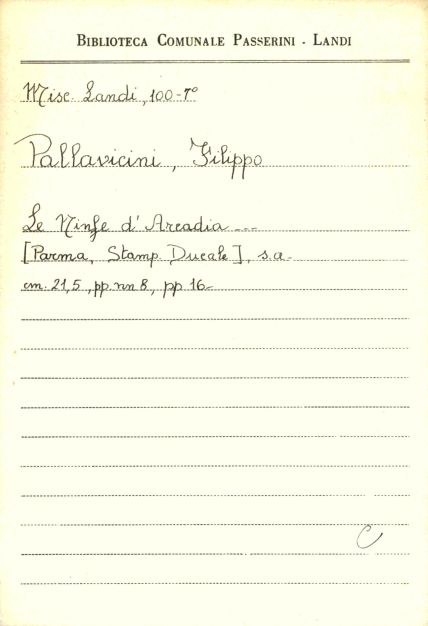 BIBLIOTECA COMUNALE PASSERINI - LANDI
Misc. Landi, 100-7°
Pallavicini, Filippo
Le Ninfe d'Arcadia ...
[Parma, Stamp. Ducale], s.a.
cm. 21,5, pp. nn 8, pp. 16-
C